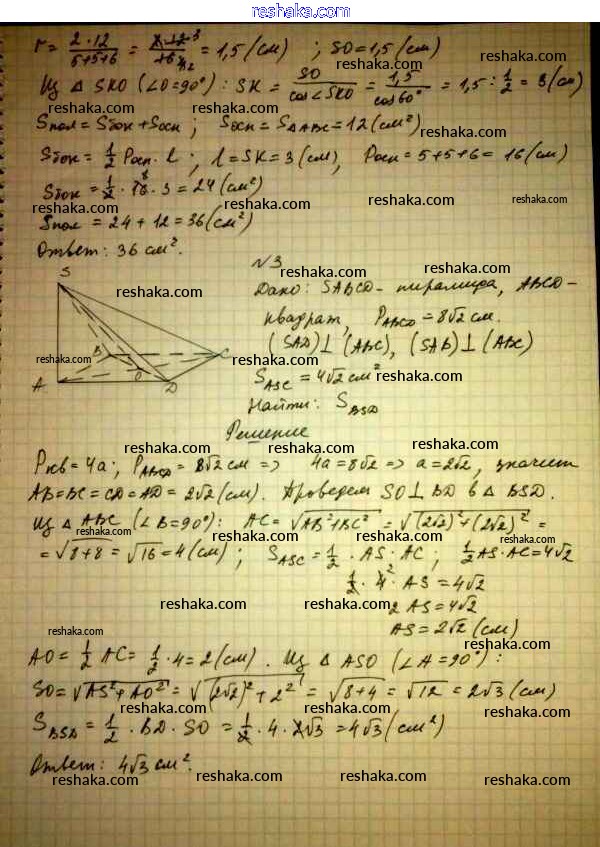 reshaka.com
r = 2·12/(5+5+6) = 2·12/16 = 1,5 (см) ; SO = 1,5 (см)
Из △ SKO (∠O=90°) : SK = SO/cos∠SKO = 1,5/cos60° = 1,5 : 1/2 = 3 (см)
Sпол = Sбок + Sосн ; Sосн = S△ABC = 12 (см²)
Sбок = 1/2 Pосн · l ; l = SK = 3 (см), Pосн = 5+5+6 = 16 (см)
Sбок = 1/2 · 16 · 3 = 24 (см²)
Sпол = 24 + 12 = 36 (см²)
Ответ: 36 см².
N3
Дано: SABCD - пирамида, ABCD -
квадрат, PABCD = 8√2 см.
(SAD) ⊥ (ABC), (SAB) ⊥ (ABC)
SASC = 4√2 см²
Найти: SBSD
S
A
B
C
D
O
Решение
Pкв = 4a ; PABCD = 8√2 см => 4a = 8√2 => a = 2√2, значит
AB=BC=CD=AD= 2√2 (см). Проведем SO ⊥ BD в △ BSD.
Из △ ABC (∠B=90°): AC = √AB²+BC² = √(2√2)²+(2√2)² =
= √8+8 = √16 = 4 (см) ; SASC = 1/2 · AS · AC ; 1/2 AS · AC = 4√2
1/2 · 4 · AS = 4√2
2 AS = 4√2
AS = 2√2 (см)
AO = 1/2 AC = 1/2 · 4 = 2 (см) . Из △ ASO (∠A=90°) :
SO = √AS²+AO² = √(2√2)²+2² = √8+4 = √12 = 2√3 (см)
SBSD = 1/2 · BD · SO = 1/2 · 4 · 2√3 = 4√3 (см²)
Ответ: 4√3 см².